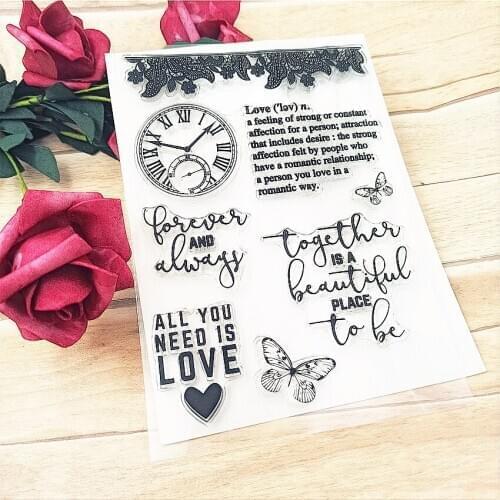 Love ('lʌv) n.
a feeling of strong or constant
affection for a person; attraction
that includes desire : the strong
affection felt by people who
have a romantic relationship;
a person you love in a
romantic way.
forever
AND
always
together
IS A
beautiful
PLACE
to be
ALL YOU
NEED IS
LOVE